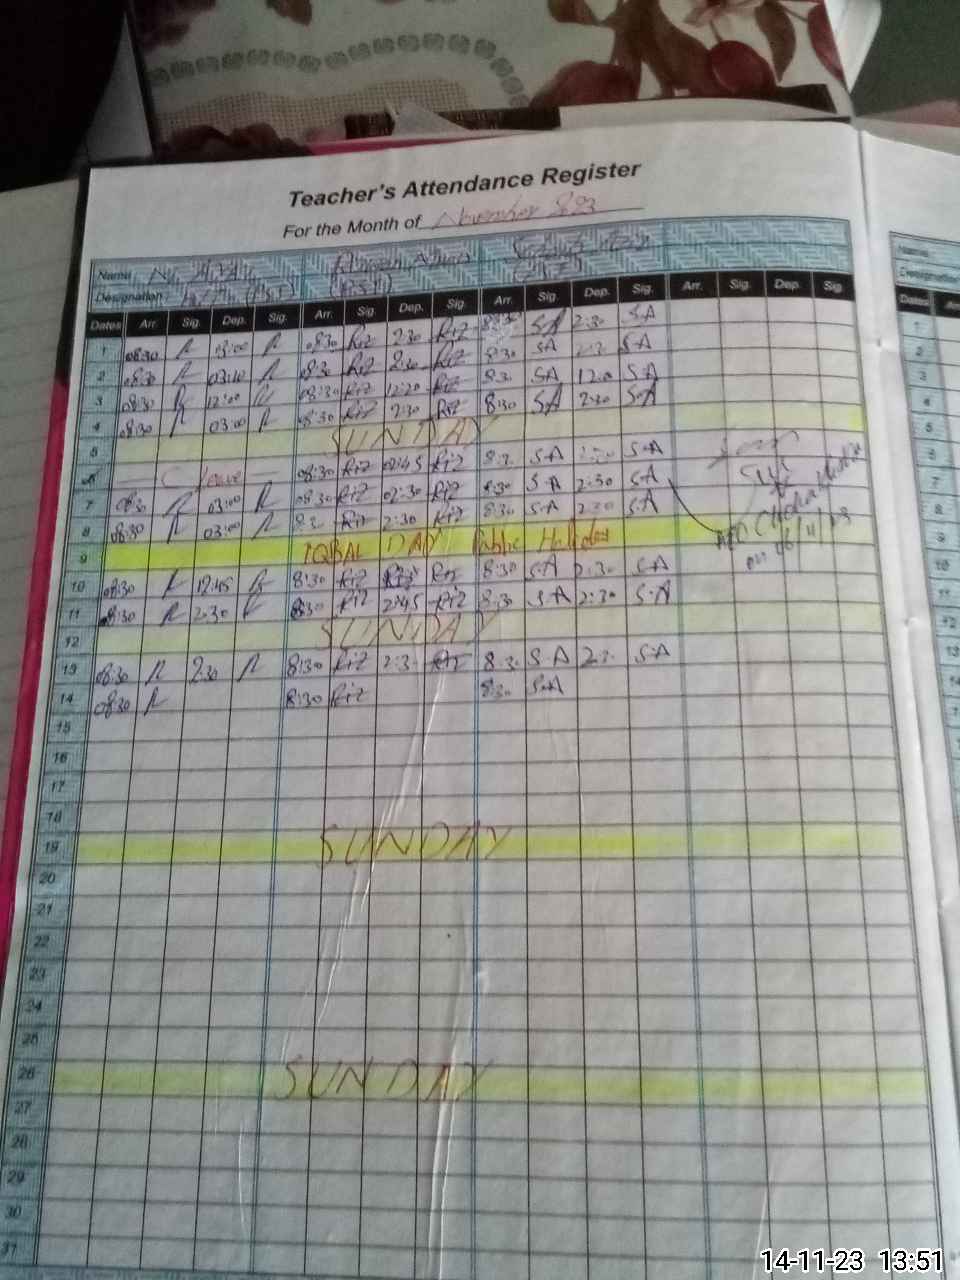 Teacher's Attendance Register
For the Month of November 2023
Name
Designation
Dates Arr. Sig. Dep. Sig. Arr. Sig. Dep. Sig. Arr. Sig. Dep. Sig. Arr. Sig. Dep. Sig
1 08:30 R 03:00 R 08:30 Riz 2:30 Riz 8:30 SA 2:30 S.A
2 08:30 R 03:10 R 08:30 Riz 2:30 Riz 8:30 SA S-A
3 08:30 R 12:00 R 08:30 Riz 12:20 Riz 8:30 SA S-A
4 08:30 R 03:00 R 08:30 Riz 2:30 Riz 8:30 SA 2:30 S-A
5 SUNDAY
6 C leave 08:30 Riz 02:45 Riz S-A S-A
7 08:30 R 03:00 R 08:30 Riz 02:30 Riz 8:30 S-A 2:30 S-A
8 08:30 R 03:00 R Riz 2:30 Riz 8:30 S-A 2:30 S-A
9 IQBAL DAY Public Holiday
10 08:30 R 12:45 R 8:30 Riz Riz 8:30 S-A S-A
11 08:30 R 2:30 R 8:30 Riz 2:45 Riz 8:30 S-A 2:30 S-A
12 SUNDAY
13 08:30 R 2:30 R 8:30 Riz 2:3 8:30 S-A S-A
14 08:30 R 8:30 Riz 8:30 S-A
15
16
17
18
19 SUNDAY
20
21
22
23
24
25
26 SUNDAY
27
28
29
30
31
14-11-23 13:51